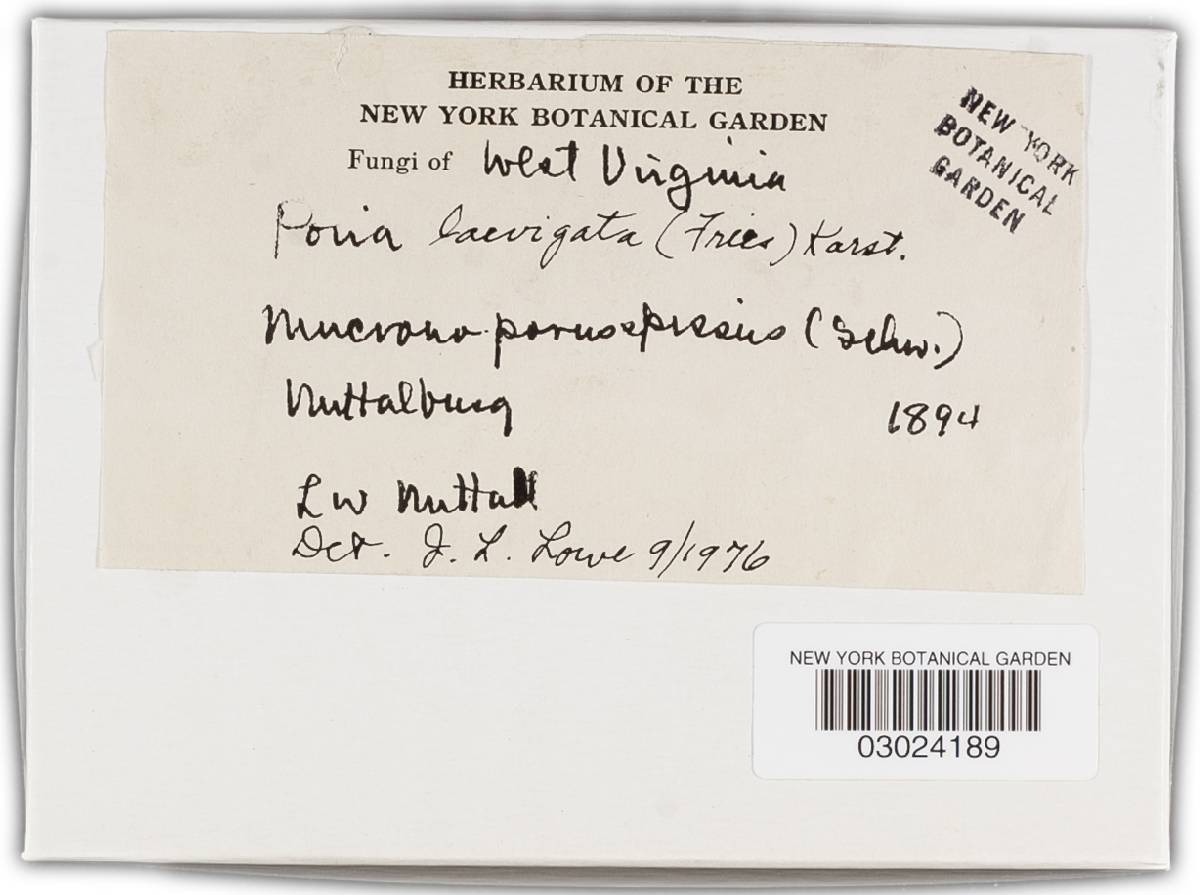 HERBARIUM OF THE
NEW YORK BOTANICAL GARDEN
Fungi of West Virginia
NEW YORK
BOTANICAL
GARDEN
Poria laevigata (Fries) Karst.
Mucronoporus spissus (Schw.)
Nuttalburg 1894
L W Nuttall
Det. J. L. Lowe 9/1976
NEW YORK BOTANICAL GARDEN
03024189